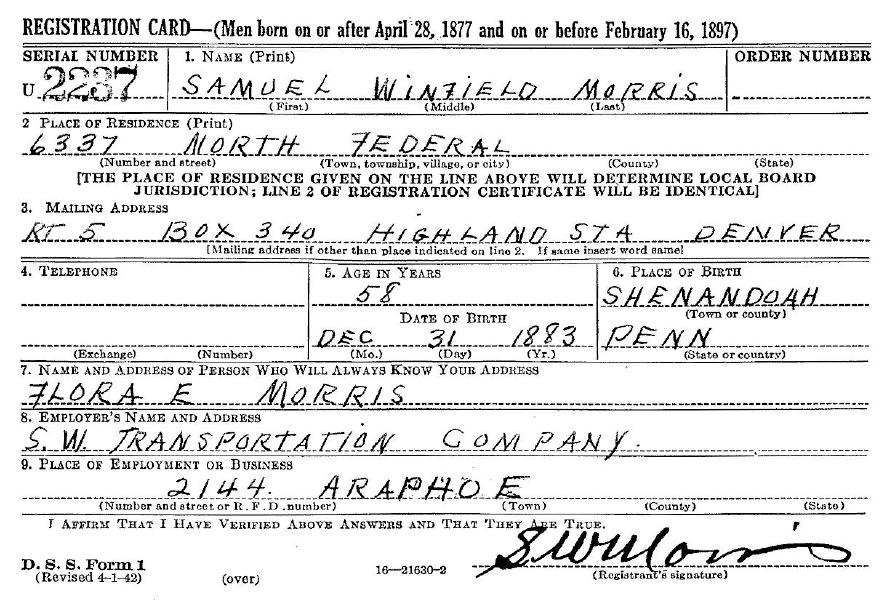 REGISTRATION CARD—(Men born on or after April 28, 1877 and on or before February 16, 1897)
SERIAL NUMBER 1. NAME (Print) ORDER NUMBER
U 2237 SAMUEL WINFIELD MORRIS
(First) (Middle) (Last)
2 PLACE OF RESIDENCE (Print)
6337 MORTH FEDERAL
(Number and street) (Town, township, village, or city) (County) (State)
[THE PLACE OF RESIDENCE GIVEN ON THE LINE ABOVE WILL DETERMINE LOCAL BOARD
JURISDICTION; LINE 2 OF REGISTRATION CERTIFICATE WILL BE IDENTICAL]
3. MAILING ADDRESS
RT 5 BOX 340 HIGHLAND STA DENVER
[Mailing address if other than place indicated on line 2. If same insert word same]
4. TELEPHONE 5. AGE IN YEARS 6. PLACE OF BIRTH
58 SHENANDOAH
DATE OF BIRTH (Town or county)
DEC 31 1883 PENN
(Exchange) (Number) (Mo.) (Day) (Yr.) (State or country)
7. NAME AND ADDRESS OF PERSON WHO WILL ALWAYS KNOW YOUR ADDRESS
FLORA E MORRIS
8. EMPLOYER'S NAME AND ADDRESS
S. W. TRANSPORTATION COMPANY.
9. PLACE OF EMPLOYMENT OR BUSINESS
2144. ARAPHOE
(Number and street or R. F. D. number) (Town) (County) (State)
I AFFIRM THAT I HAVE VERIFIED ABOVE ANSWERS AND THAT THEY ARE TRUE.
S W Morris
D. S. S. Form 1
(Revised 4-1-42) (over) 16—21630-2 (Registrant's signature)